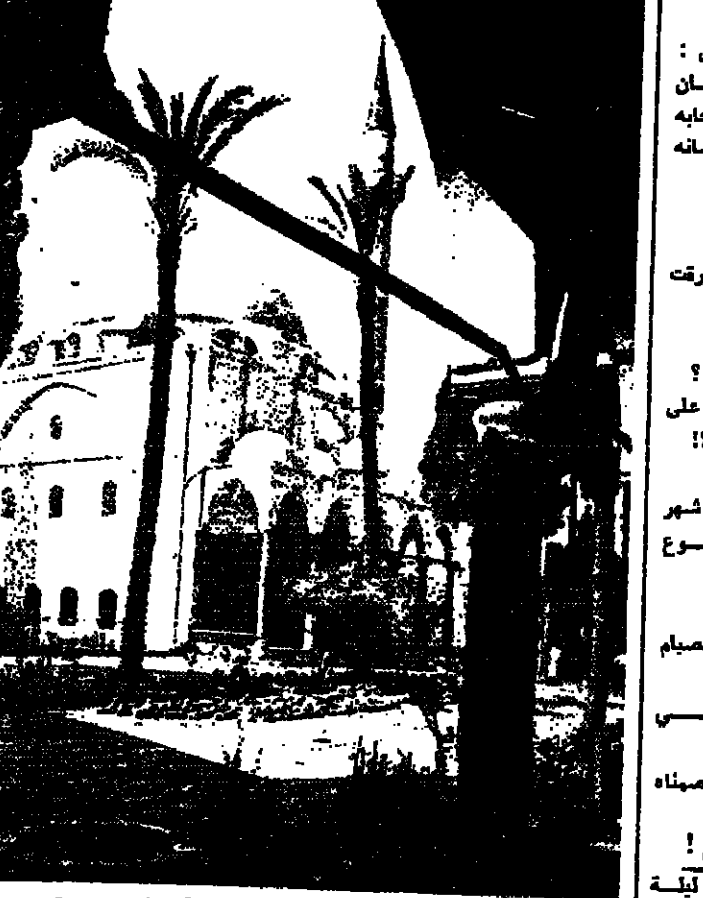 :
ـان
ـابه
ـانه
رقت
؟
على
!!
شهر
ـوع
صيام
ـي
صمناه
!
ليلـة